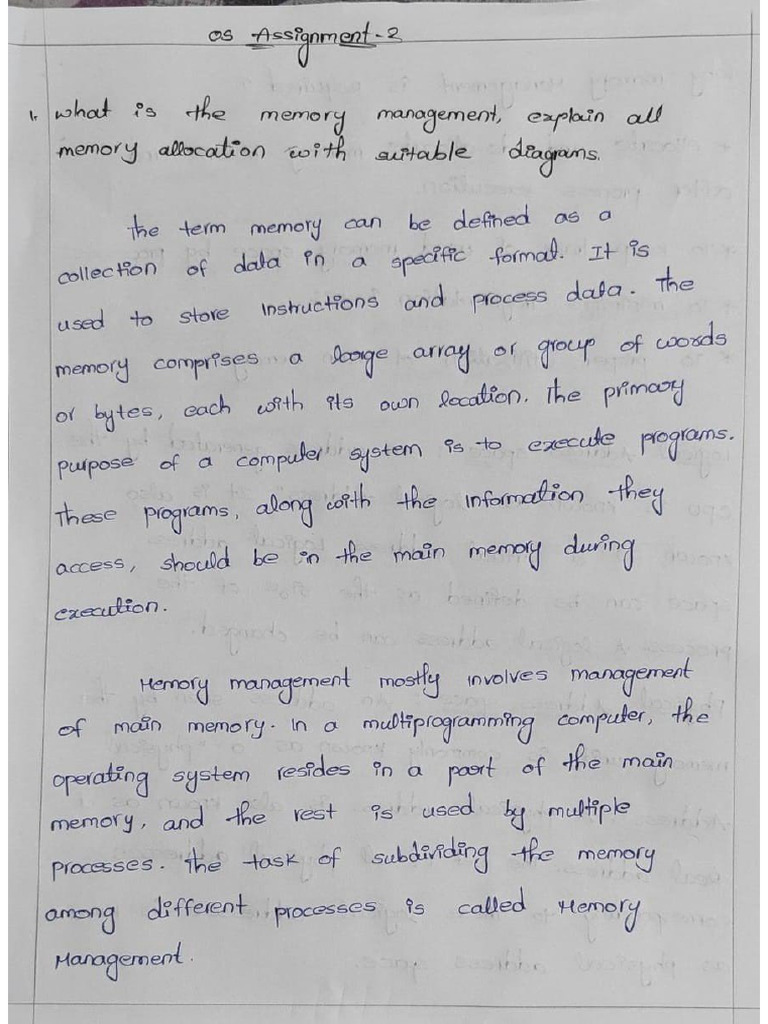 OS Assignment-2
1. What is the memory management, explain all
memory allocation with suitable diagrams.
The term memory can be defined as a
collection of data in a specific format. It is
used to store instructions and process data. The
memory comprises a large array or group of words
or bytes, each with its own location. The primary
purpose of a computer system is to execute programs.
These programs, along with the information they
access, should be in the main memory during
execution.
Memory management mostly involves management
of main memory. In a multiprogramming computer, the
operating system resides in a part of the main
memory, and the rest is used by multiple
processes. The task of subdividing the memory
among different processes is called Memory
Management.